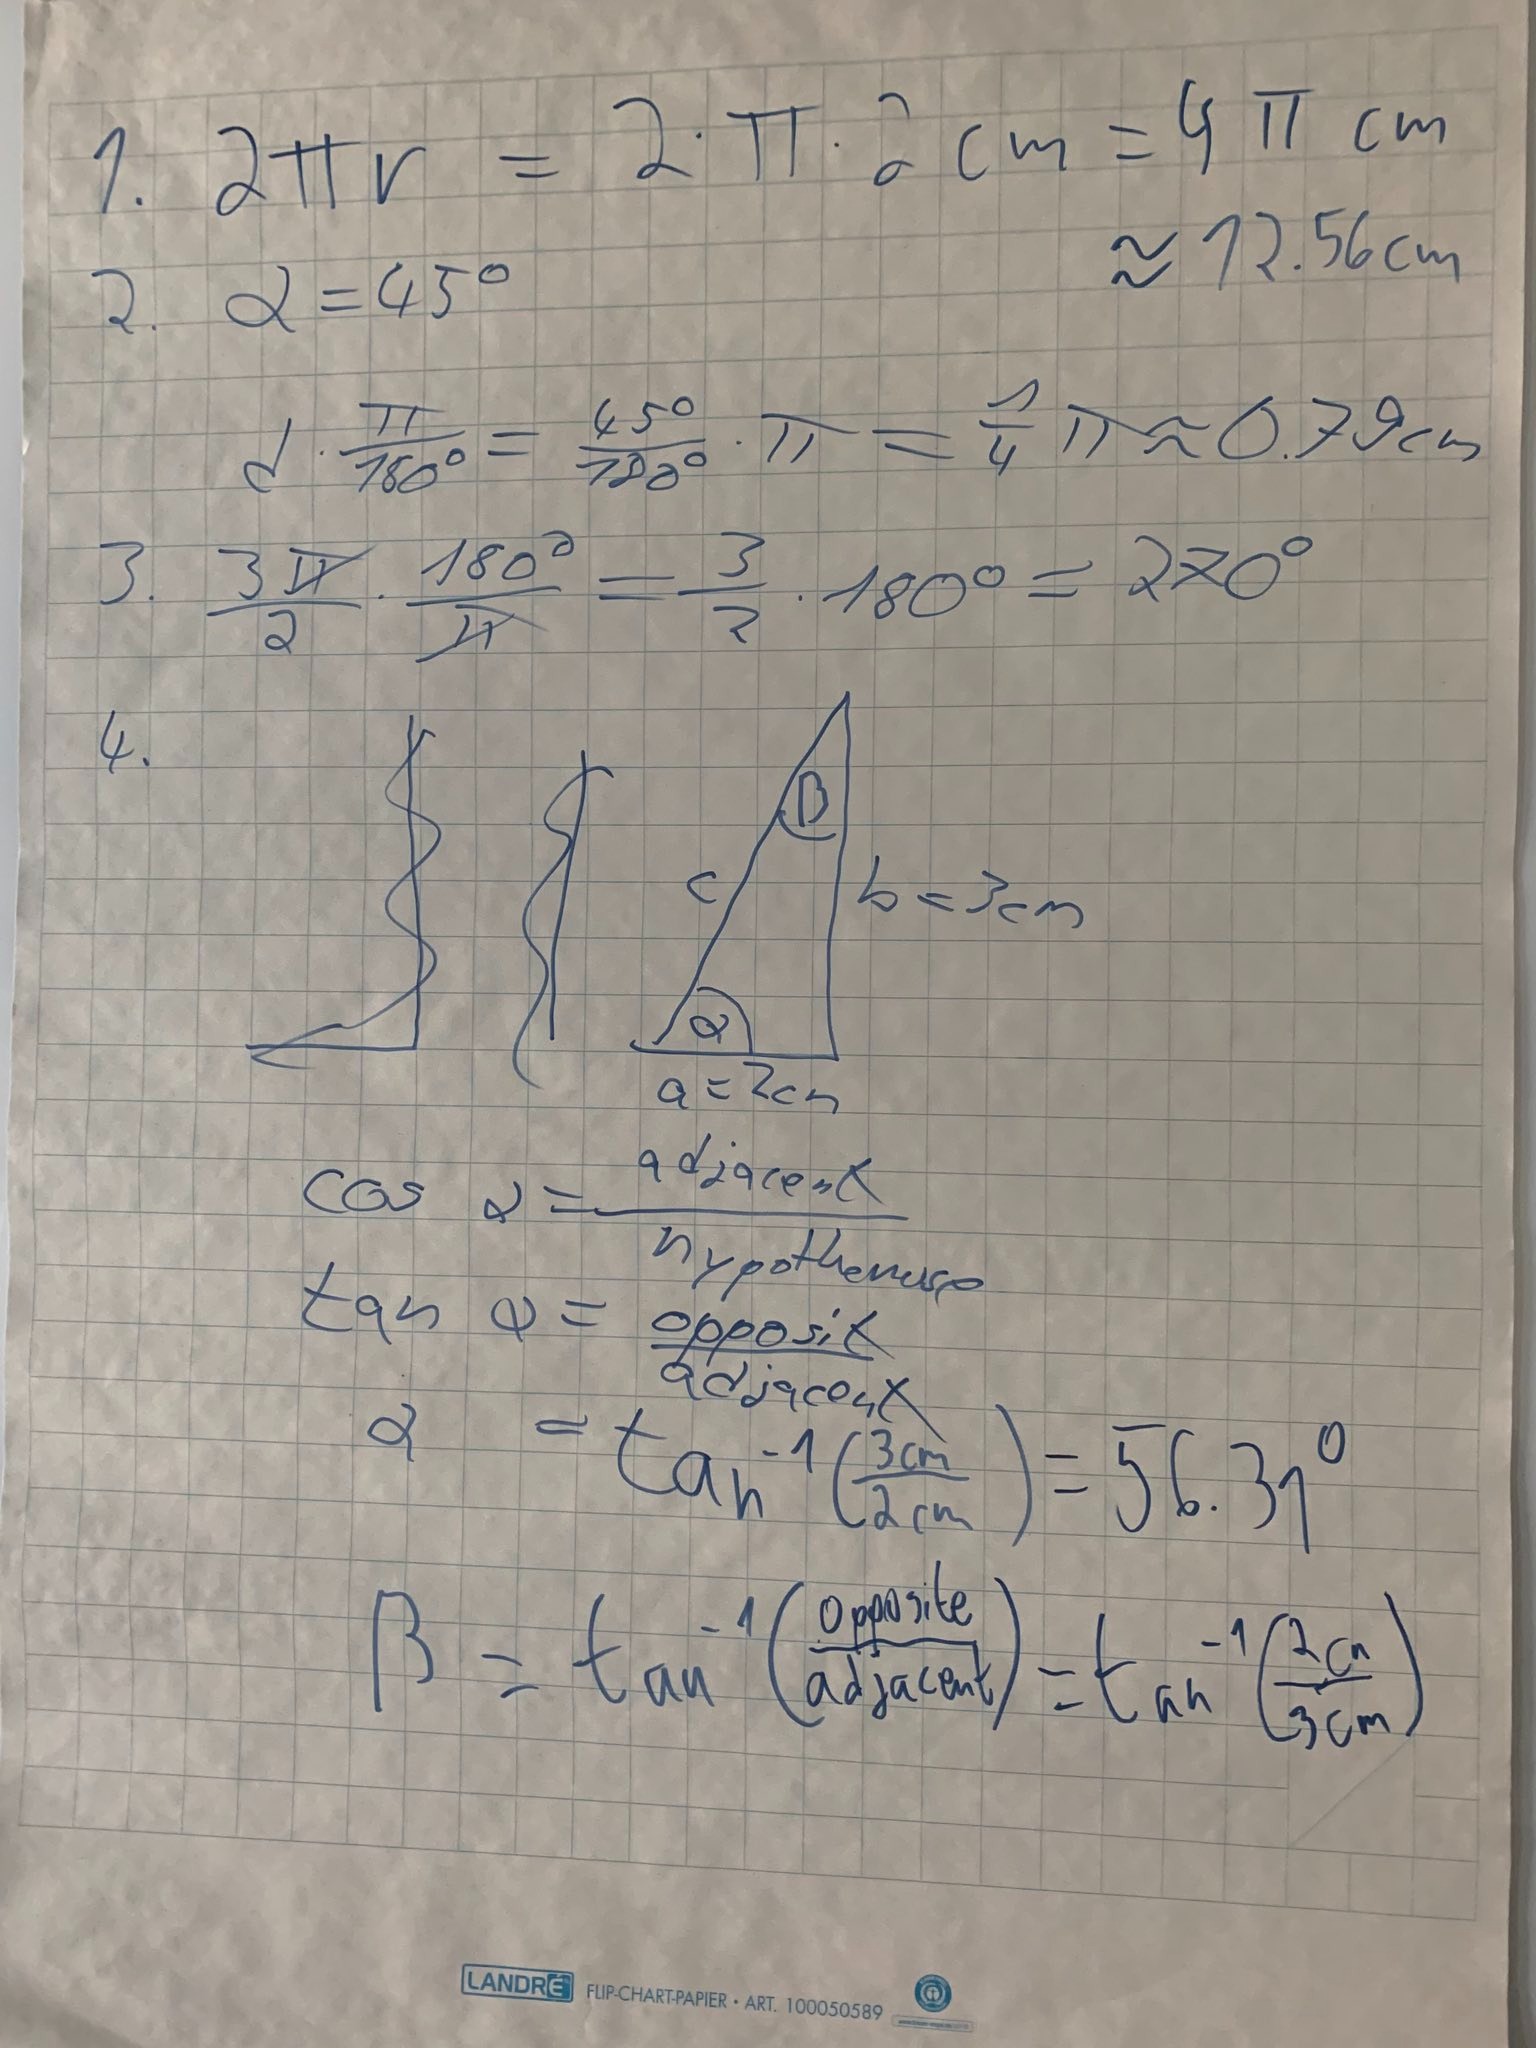 1. 2πr = 2·π·2cm = 4π cm
≈ 12.56cm
2. α = 45°
α · π/180° = 45°/180° · π = 1/4 π ≈ 0.79cm
3. 3π/2 · 180°/π = 3/2 · 180° = 270°
4.
β
c b = 3cm
α
a = 2cm
cos α = adjacent/hypothenuse
tan α = opposit/adjacent
α = tan⁻¹(3cm/2cm) = 56.31°
β = tan⁻¹(opposite/adjacent) = tan⁻¹(2cm/3cm)
LANDRÉ FLIP-CHART-PAPIER • ART. 100050589